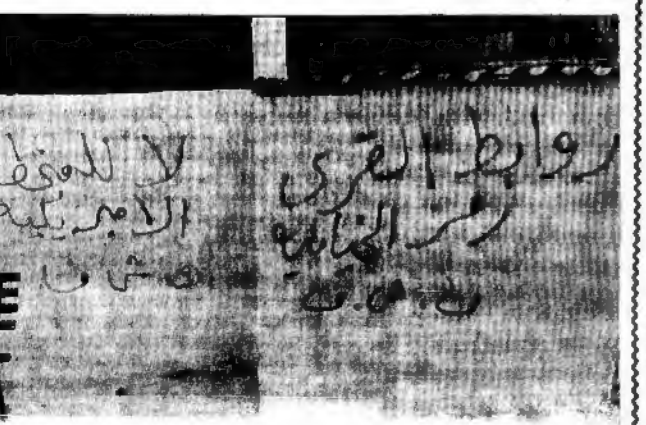 روابط القرى
رمز الخيانة
ش.م.ت
لا للمخط
الامريكية
ش.م.ت